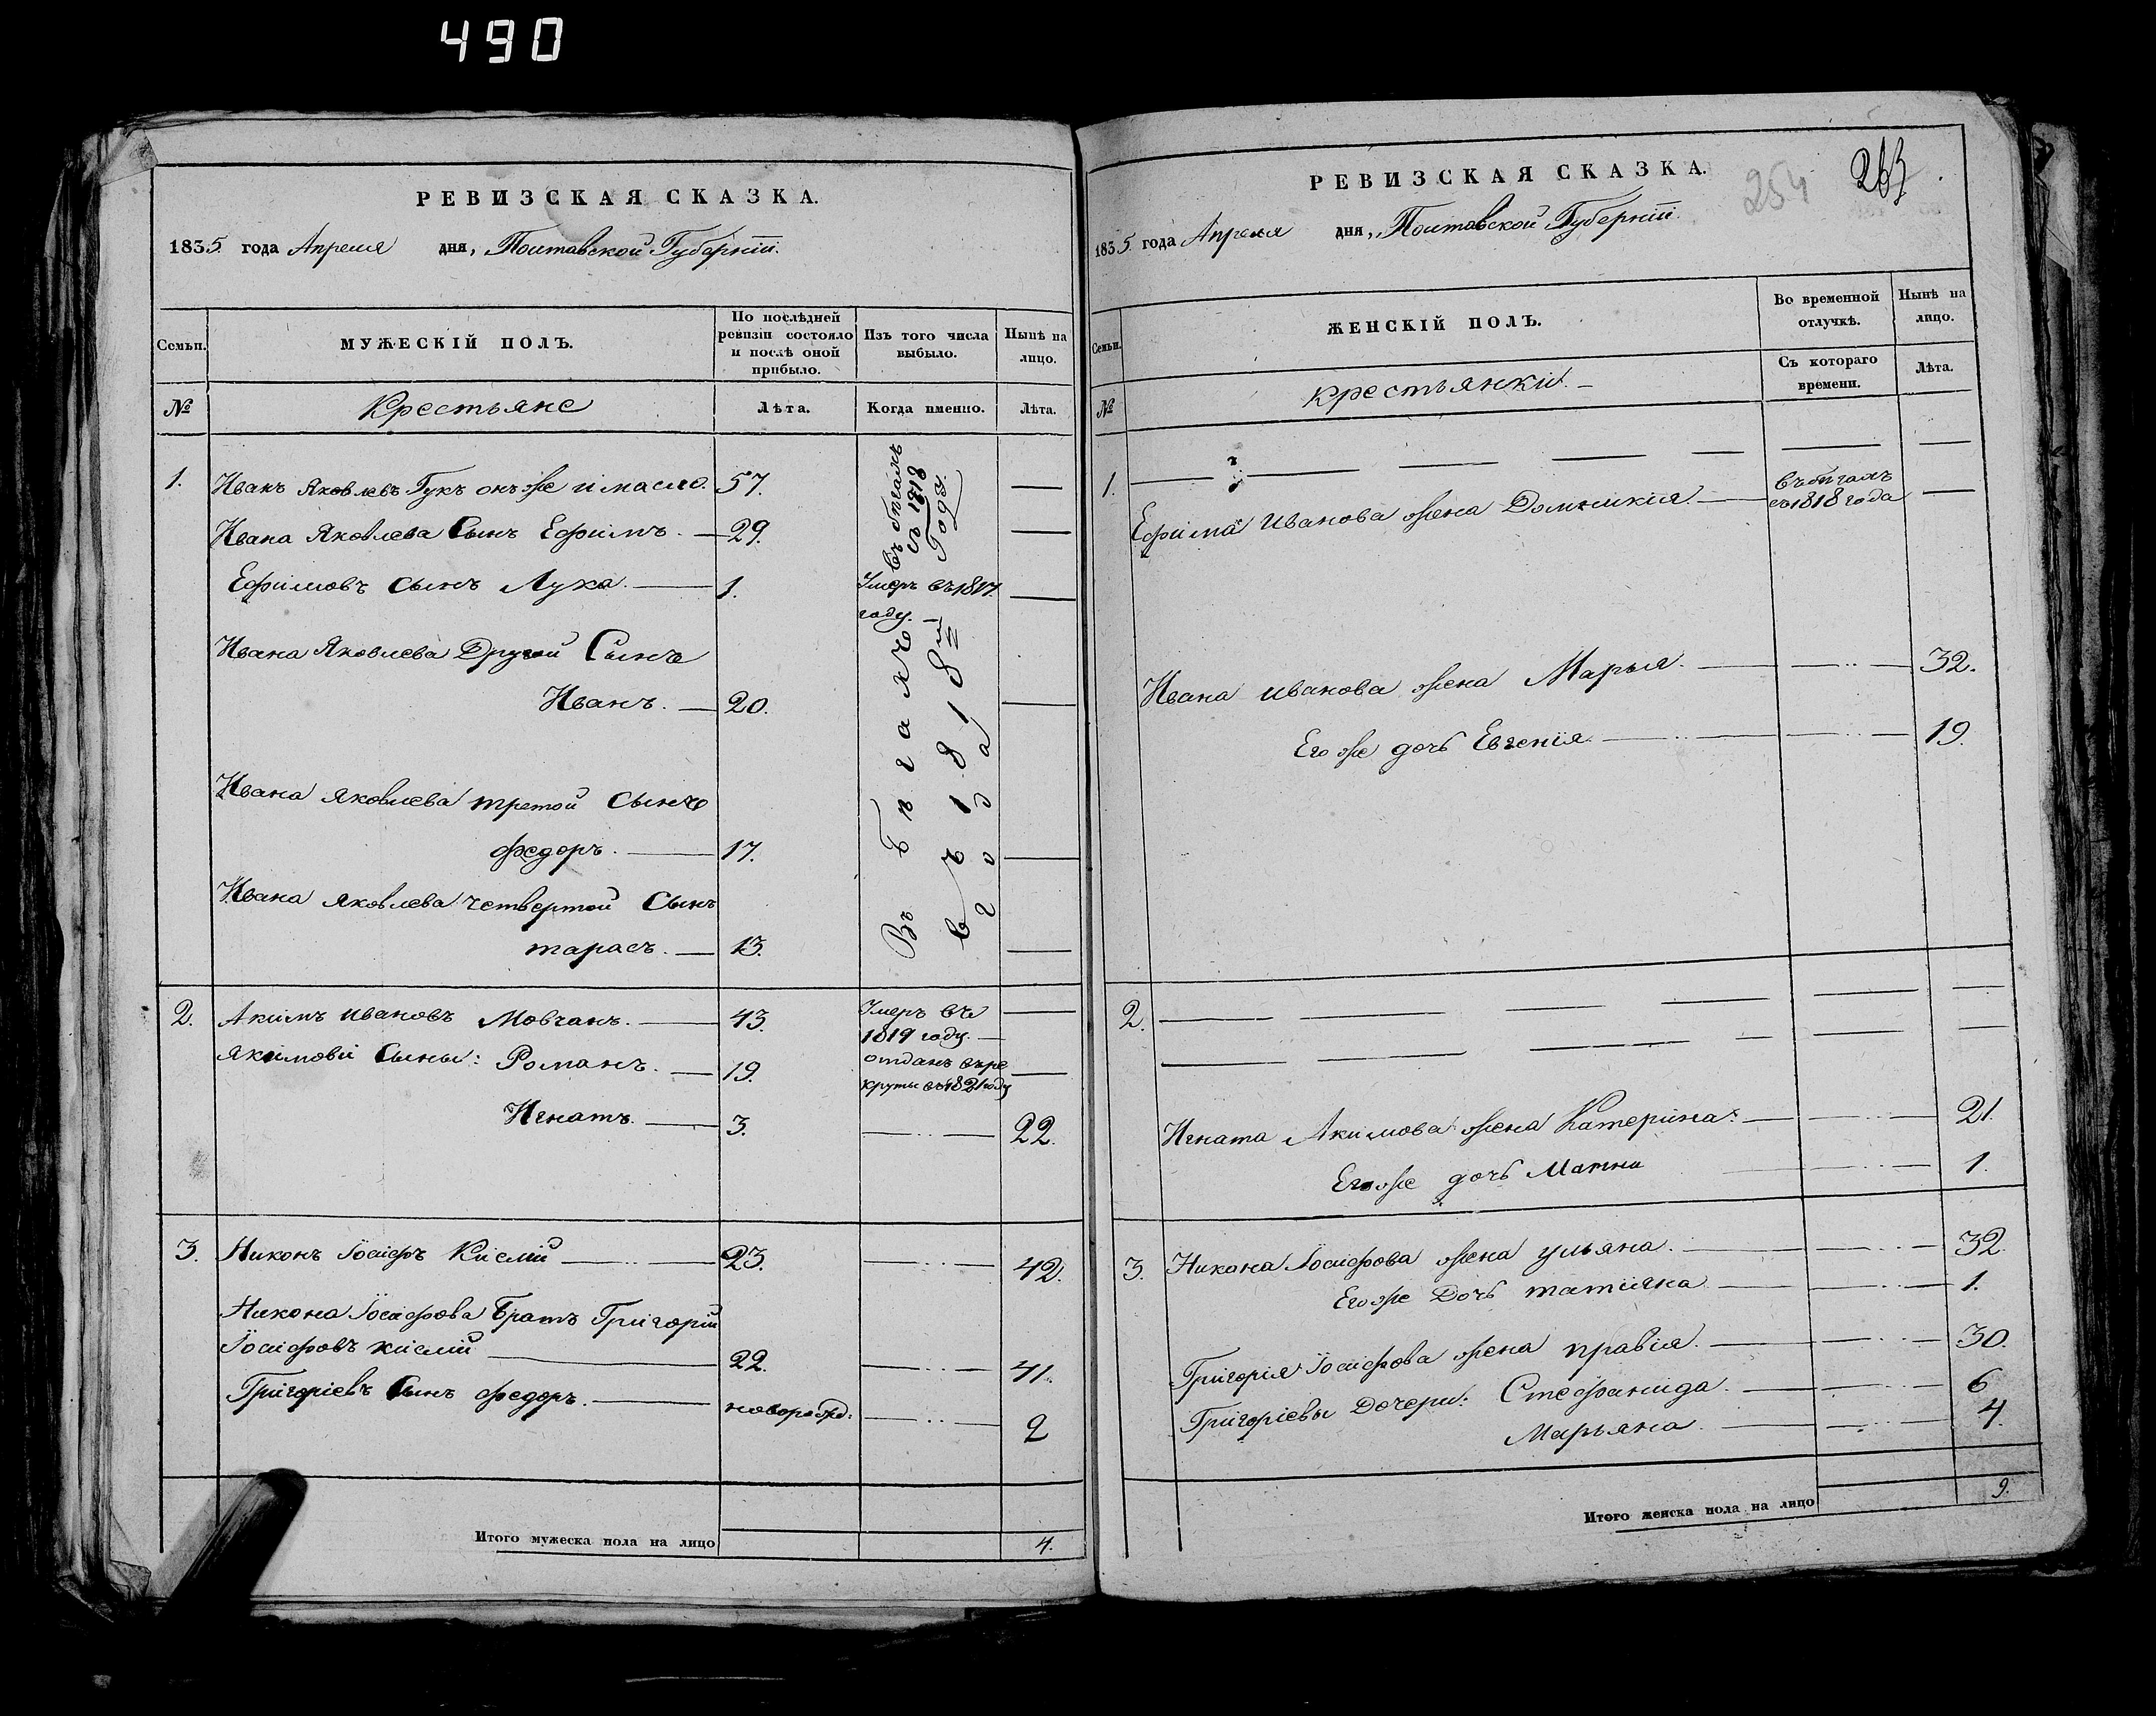 490
РЕВИЗСКАЯ СКАЗКА.
1835. года Апреля дня, Полтавской Губерніи.
Семьи.
МУЖЕСКІЙ ПОЛЪ.
По послѣдней ревизіи состояло и послѣ оной прибыло.
Изъ того числа выбыло.
Нынѣ на лицо.
№
Крестьяне
Лѣта.
Когда именно.
Лѣта.
1. Иванъ Яковлевъ Гукъ онъ же и масло. 57. —
въ бѣгахъ
съ 1818
Года
Ивана Яковлева Сынъ Ефимъ. — 29. —
Ефимовъ сынъ Лука. — 1. Умеръ въ 1817. —
году. —
Ивана Яковлева Другой Сынъ
Иванъ. — 20. —
Въ бѣгахъ
въ 1818 м
года
Ивана Яковлева третой Сынъ
Федоръ. — 17. —
Ивана Яковлева четвертой Сынъ
тарасъ. — 13. —
2. Акимъ Ивановъ Мовчанъ. — 43. Умеръ въ —
1819 году. —
Якимови Сыны: Романъ. — 19. отданъ въ ре —
круты въ 1821 году
Игнатъ. — 3. —..— 22.
3. Никонъ Іосифъ Кислій —..— 23. —..— 42.
Никона Іосифова Братъ Григорій
Іосифовъ кислій — 22. —..— 41.
Григоріевъ Сынъ Федоръ. — новорожд: —..— 2
Итого мужеска пола на лицо 4.
РЕВИЗСКАЯ СКАЗКА.
254 263
1835. года Апреля дня, Полтавской Губерніи.
Семьи.
ЖЕНСКІЙ ПОЛЪ.
Во временной отлучкѣ.
Нынѣ на лицо.
Съ котораго времени.
Лѣта.
№
крестьянки. —
1. — — — — — —
Ефима Иванова жена Домникия. — въ бѣгахъ —
съ 1818 года
Ивана Иванова жена Марья. — —..— 32.
Его же дочь Евгенія. —..— —..— 19.
2. — — — — — —
— — — — — —
Игната Акимова жена Катерина. — —..— 21.
Его же дочь Матна —..— 1.
3. Никона Іосифова жена ульяна. — —..— 32.
Его же Дочь татияна — —..— 1.
Григорія Іосифова жена правія. — —..— 30.
Григоріевы Дочери: Стефанида. — —..— 6
Марьяна. — —..— 4.
Итого женска пола на лицо 9.